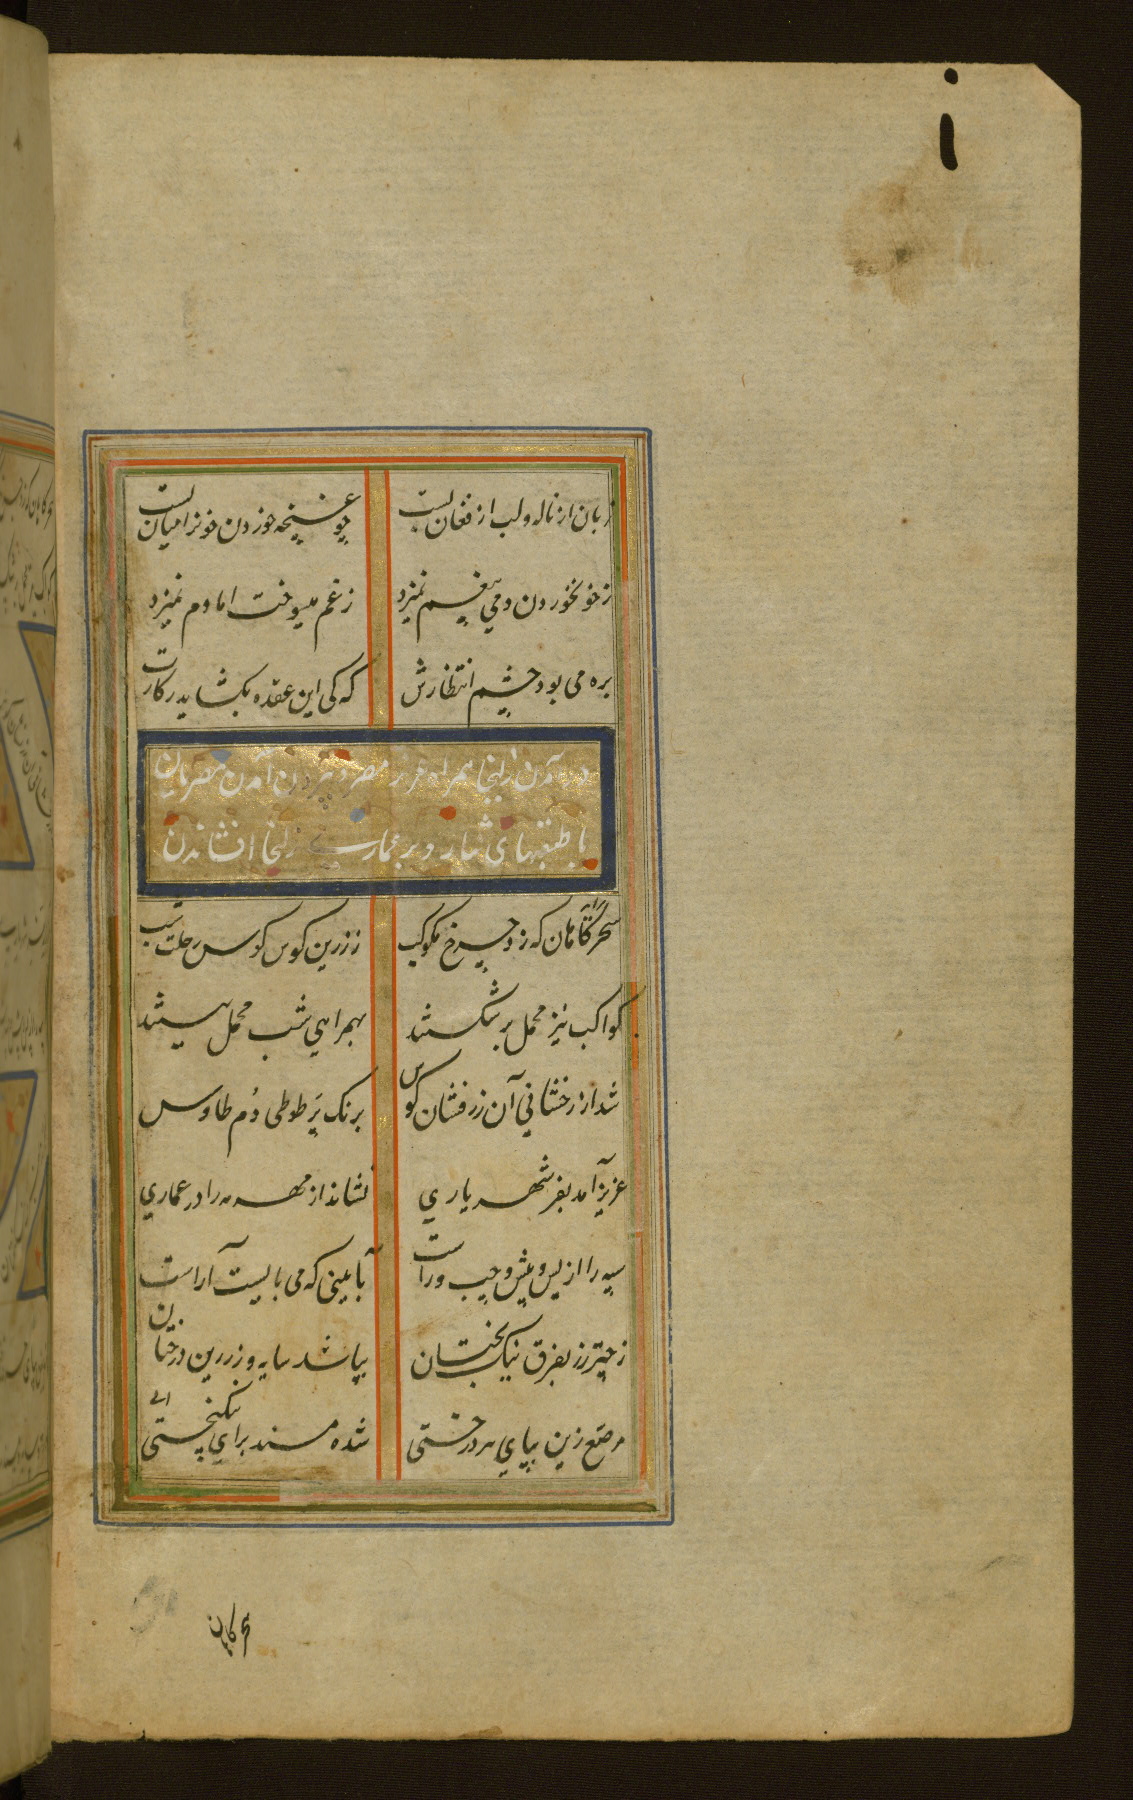 زبان از ناله و لب از فغان بست
چو غنچه خوردن خونرا میان بست
ز خون خوردن دمی بیغم نمیزد
ز غم میسوخت اما دم نمیزد
بره می بود چشم انتظارش
که کی این عقده بکشاید ز کارت
در آمدن زلیخا همراه عزیز مصر و آمدن مصریان
با طبقهای نثار و بر عماری زلیخا افشاندن
سحرگاهان که زد چرخ مکوکب
ز زرین کوس کوس رحلت شب
کواکب نیز محمل برشکستند
بهمراهی شب محمل ببستند
شد از رخشانی آن زرفشان کوس
برنک پر طوطی دم طاوس
عزیز آمد بفر شهریاری
نشاند از مهر مه را در عماری
سپه را از پس و پیش و چپ و راست
بآیینی که می بایست آراست
ز چتر زر بفرق نیکبختان
بپا شد سایه ور زرین درختان
مرصع زین بپای هر درختی
شده مسند برای نیکبختی